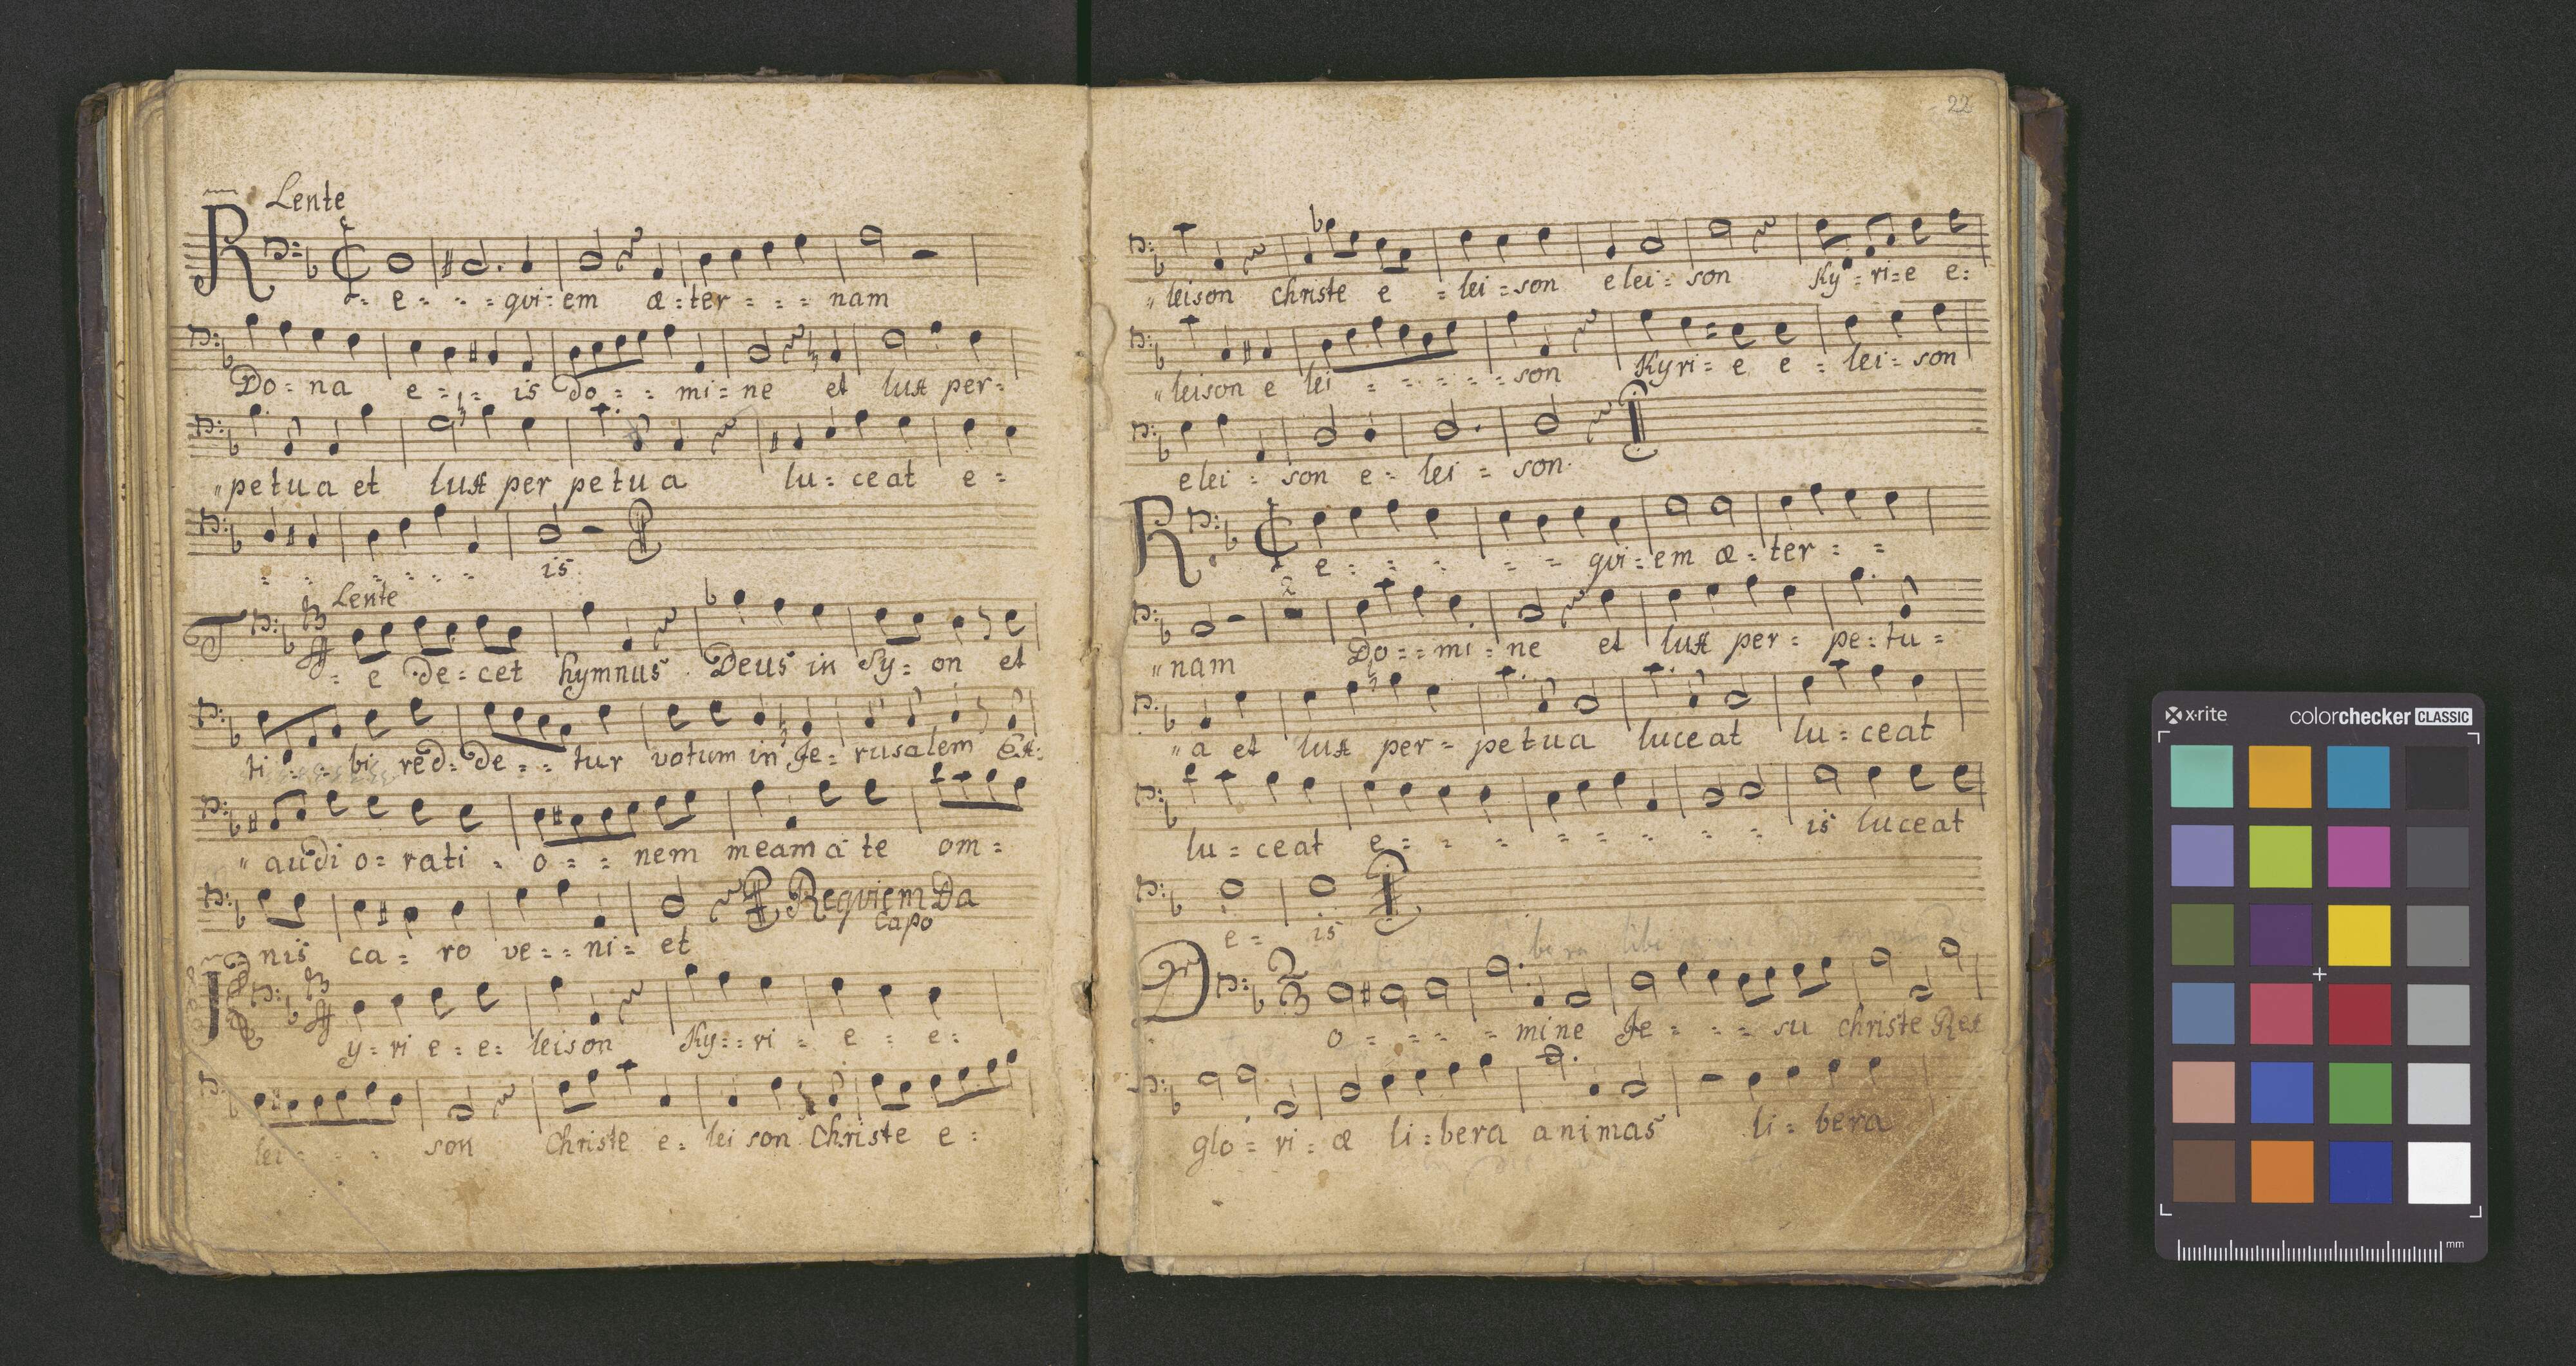 Lente
R - e - - - qui - em æ - ter - - - nam
Do - na e - - - is do - - - mi - ne et lux per -
petua et lux per petua lu - ceat e -
- - - - - - is
Lente
T - e de - cet hymnus Deus in Sy - on et
ti - - - bi red - de - - - tur votum in Je - rusalem Ex -
audi o - rati - o - - - nem meam a te om -
nis ca - ro ve - - ni - et Requiem Da
Capo
y - ri e - e - leison Ky - - ri - e - e -
lei - - - son Christe e - lei son Christe e -
22
leison christe e - lei - son elei - son Ky - ri - e e -
leison e lei - - - - - son Kyri - e e - lei - son
elei - son e - lei - son
R e - - - - - qui - em æ - ter - -
2
nam Do - - mi - ne et lux per - pe - tu -
a et lux per - petua luceat lu - ceat
lu - ceat e - - - - - - - is luceat
e - is
bera libe
D o - - - - mine Je - - - su christe Rex
glo - ri - æ li - bera animas li - bera
x·rite colorchecker CLASSIC
mm